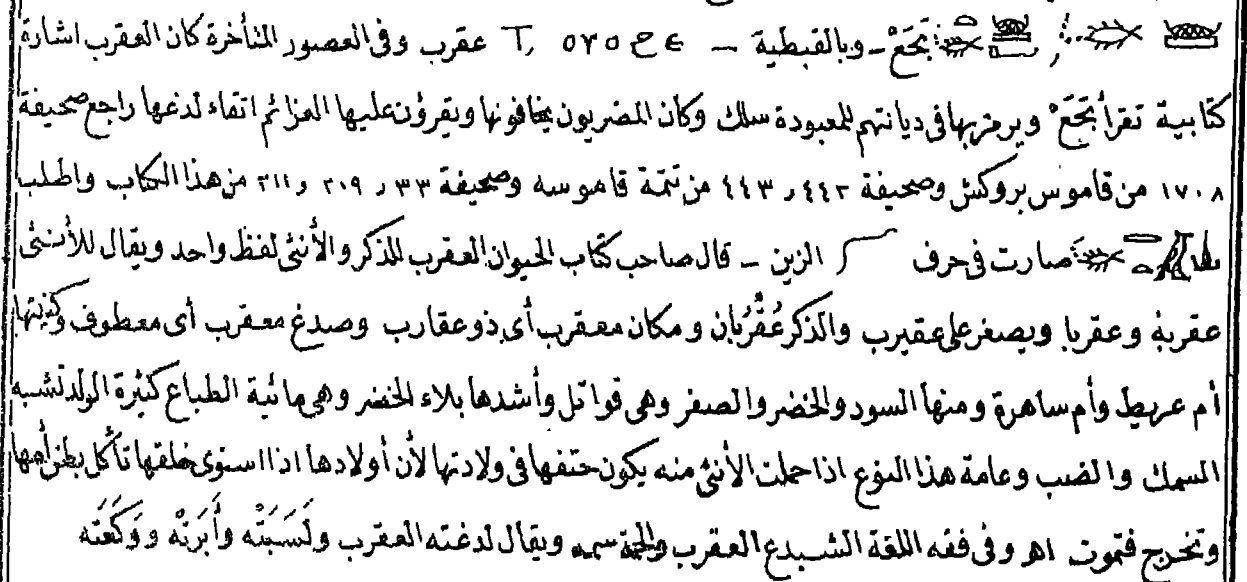 تَجَعْ - وبالقبطية - ϭⲁⲟⲩⲟ T, عقرب وفى العصور المتأخرة كان العقرب اشارة
كتابية تقرأ تَجَعْ ويرمز بها فى ديانتهم للمعبودة سلك وكان المصريون يخافونها ويقرؤن عليها العزائم اتقاء لدغها راجع صحيفة
١٧٠٨ من قاموس بروكش وصحيفة ٤٤٢ ر ٤٤٣ من تتمة قاموسه وصحيفة ٣٣ ر ٢٠٩ ر ٢١١ من هذا الكتاب واطلب
صارت فى حرف الزين - قال صاحب كتاب الحيوان العقرب للذكر والأنثى لفظ واحد ويقال للأنثى
عقربة وعقربا ويصغر على عقيرب والذكر عُقْرُبان ومكان معقرب أى ذو عقارب وصدغ معقرب أى معطوف وكنيتها
أم عريط وأم ساهرة ومنها السود والخضر والصفر وهى قواتل وأشدها بلاء الخضر وهى مائية الطباع كثيرة الولد تشبه
السمك والضب وعامة هذا النوع اذا حملت الأنثى منه يكون حتفها فى ولادتها لأن أولادها اذا استوى خلقها تأكل بطن أمها
وتخرج فتموت اهـ وفى فقه اللغة الشبدع العقرب والحمة سمه ويقال لدغته العقرب ولَسَبَتْه وأَبَرَتْه ووَكَعَتْه